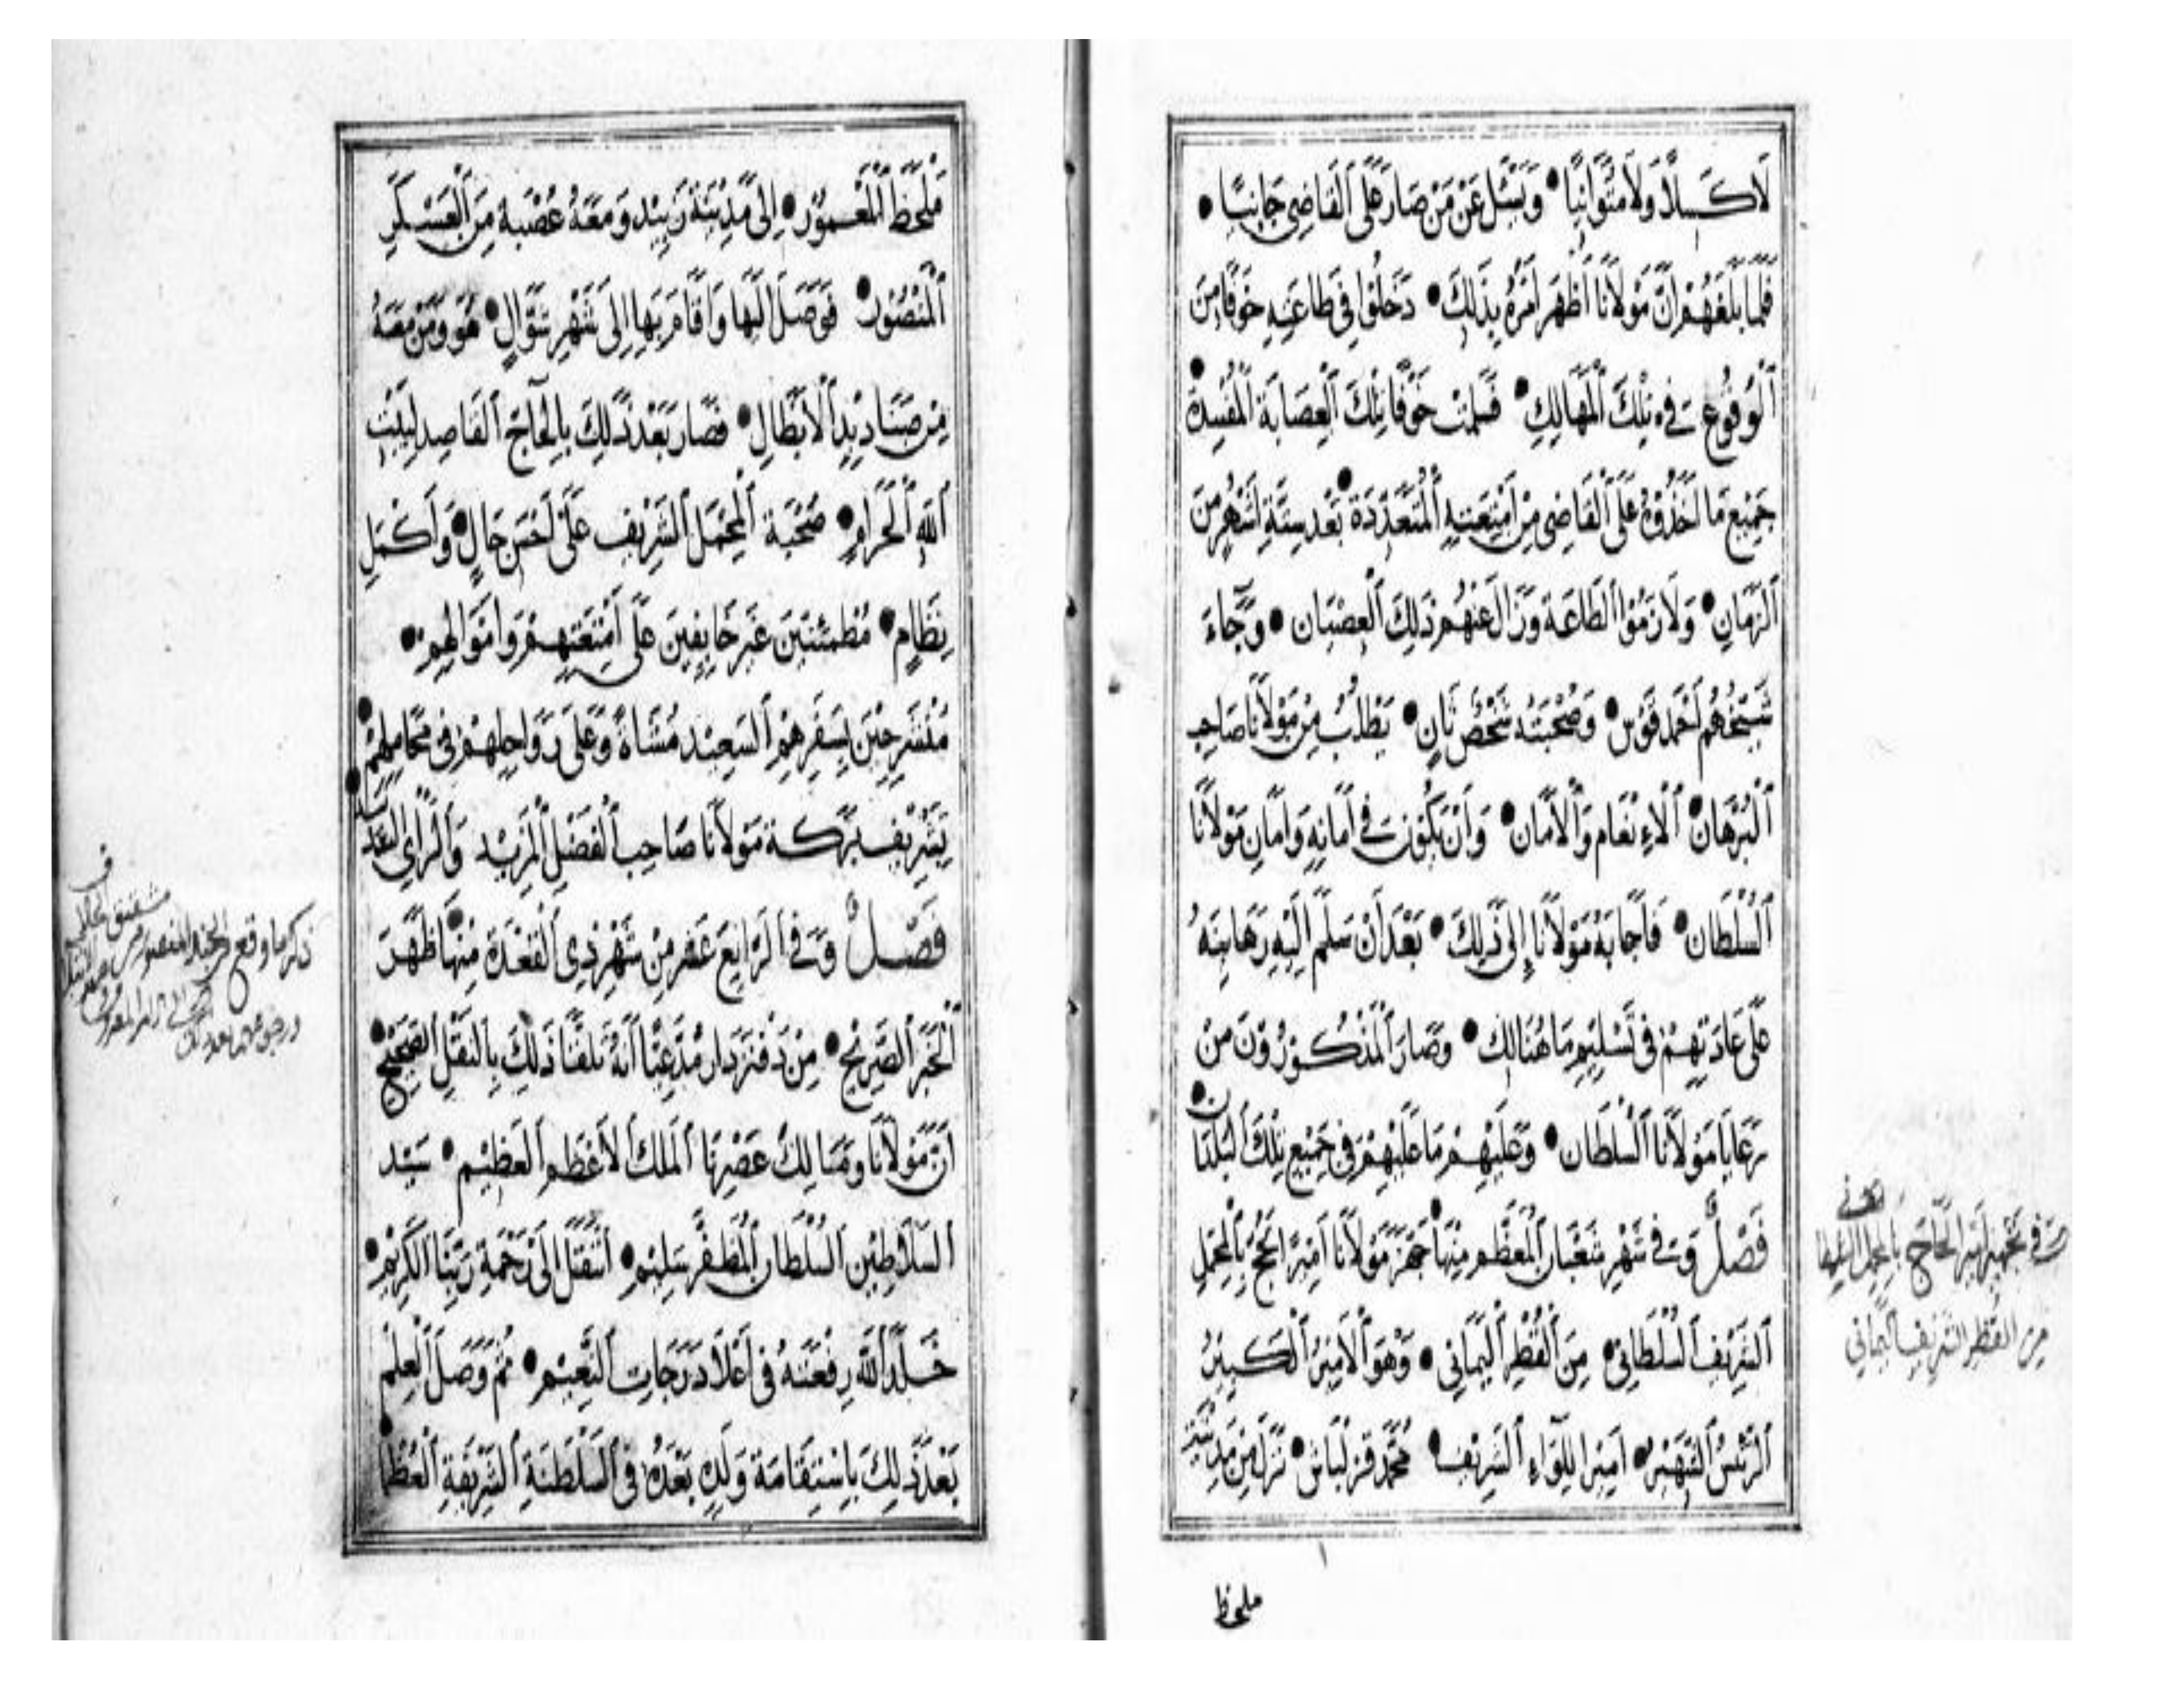 لاكسلا ولا متوانيا • ويسئل عن من صار على القاضي جانبا •
فلما بلغهم ان مولانا أظهر امره بذلك • دخلوا في طاعته خوفا من
الوقوع في تلك المهالك • فسلمت خوفا تلك العصابة المفسدة •
جميع ما اخذوه على القاضي من امتعته المتعددة • بعد ستة اشهر من
الزمان • ولازموا الطاعة وزال عنهم ذلك العصيان • وجاء
شيخهم احمد قوس • وصحبته شخص ثان • يطلب من مولانا صاحب
البرهان • الانعام والامان • وان يكون في امانه وامان مولانا
السلطان • فاجابه مولانا إلى ذلك • بعد أن سلم اليه رهاينه
على عادتهم في تسليم ما هنالك • وصار المذكورون من
رعايا مولانا السلطان • وعليهم ما عليهم في جميع تلك البلدان •
فصل وفي شهر شعبان المعظم منها • جهز مولانا امير الحج بالمحمل
الشريف السلطاني • من القطر اليماني • وهو الامير الكبير
الرئيس الشهير • امير اللواء الشريف • محمد قزلباش • نزل من مدينة
في تجهيز امير الحاج بالمحمل
من القطر الشريف اليماني
ملحظ
ملحظ المعمور • إلى مدينة زبيد ومعه عصبة من العسكر
المنصور • فوصل اليها واقام بها إلى شهر شوال • هو ومن معه
من صناديد الابطال • فصار بعد ذلك بالحاج القاصد لبيت
الله الحرام • صحبة المحمل الشريف على احسن حال • واكمل
نظام • مطمئنين غير خايفين على امتعتهم واموالهم •
منشرحين بسفرهم السعيد مشاة وعلى رواحلهم في محاملهم •
بتشريف بركة مولانا صاحب الفضل المزيد والراي السديد •
فصل وفي الرابع عشر من شهر ذي القعدة منها • ظهر
الخبر الصريح • من دفتردار مدعيا أنه تلقنا ذلك بالنقل الصحيح •
ان مولانا ومالك عصرنا الملك الاعظم العظيم • سيد
السلاطين السلطان المظفر سليم • انتقل الى رحمة ربنا الكريم •
خلد الله رفعته في اعلا درجات النعيم • ثم وصل العلم
بعد ذلك باستقامة ولده بعده في السلطنة الشريفة العظما •
ذكر ما وقع